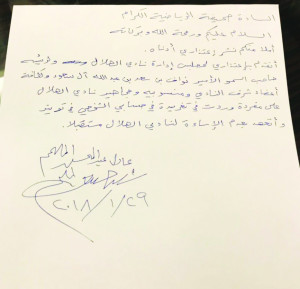 السادة صحيفة الرياضية الكرام
السلام عليكم ورحمة الله وبركاته
آمل منكم نشر اعتذاري أدناه
أتقدم باعتذاري لمجلس إدارة نادي الهلال ورئيسه
صاحب السمو الأمير نواف بن سعد بن عبدالله آل سعود وكافة
أعضاء شرف النادي ومنسوبيه وجماهير نادي الهلال
على ما وردت في تغريدة في حسابي الشخصي في تويتر
وأتعهد بعدم الإساءة لنادي الهلال مستقبلاً
عادل عبدالمحسن الملحم
٢٠١٨/١/٢٩